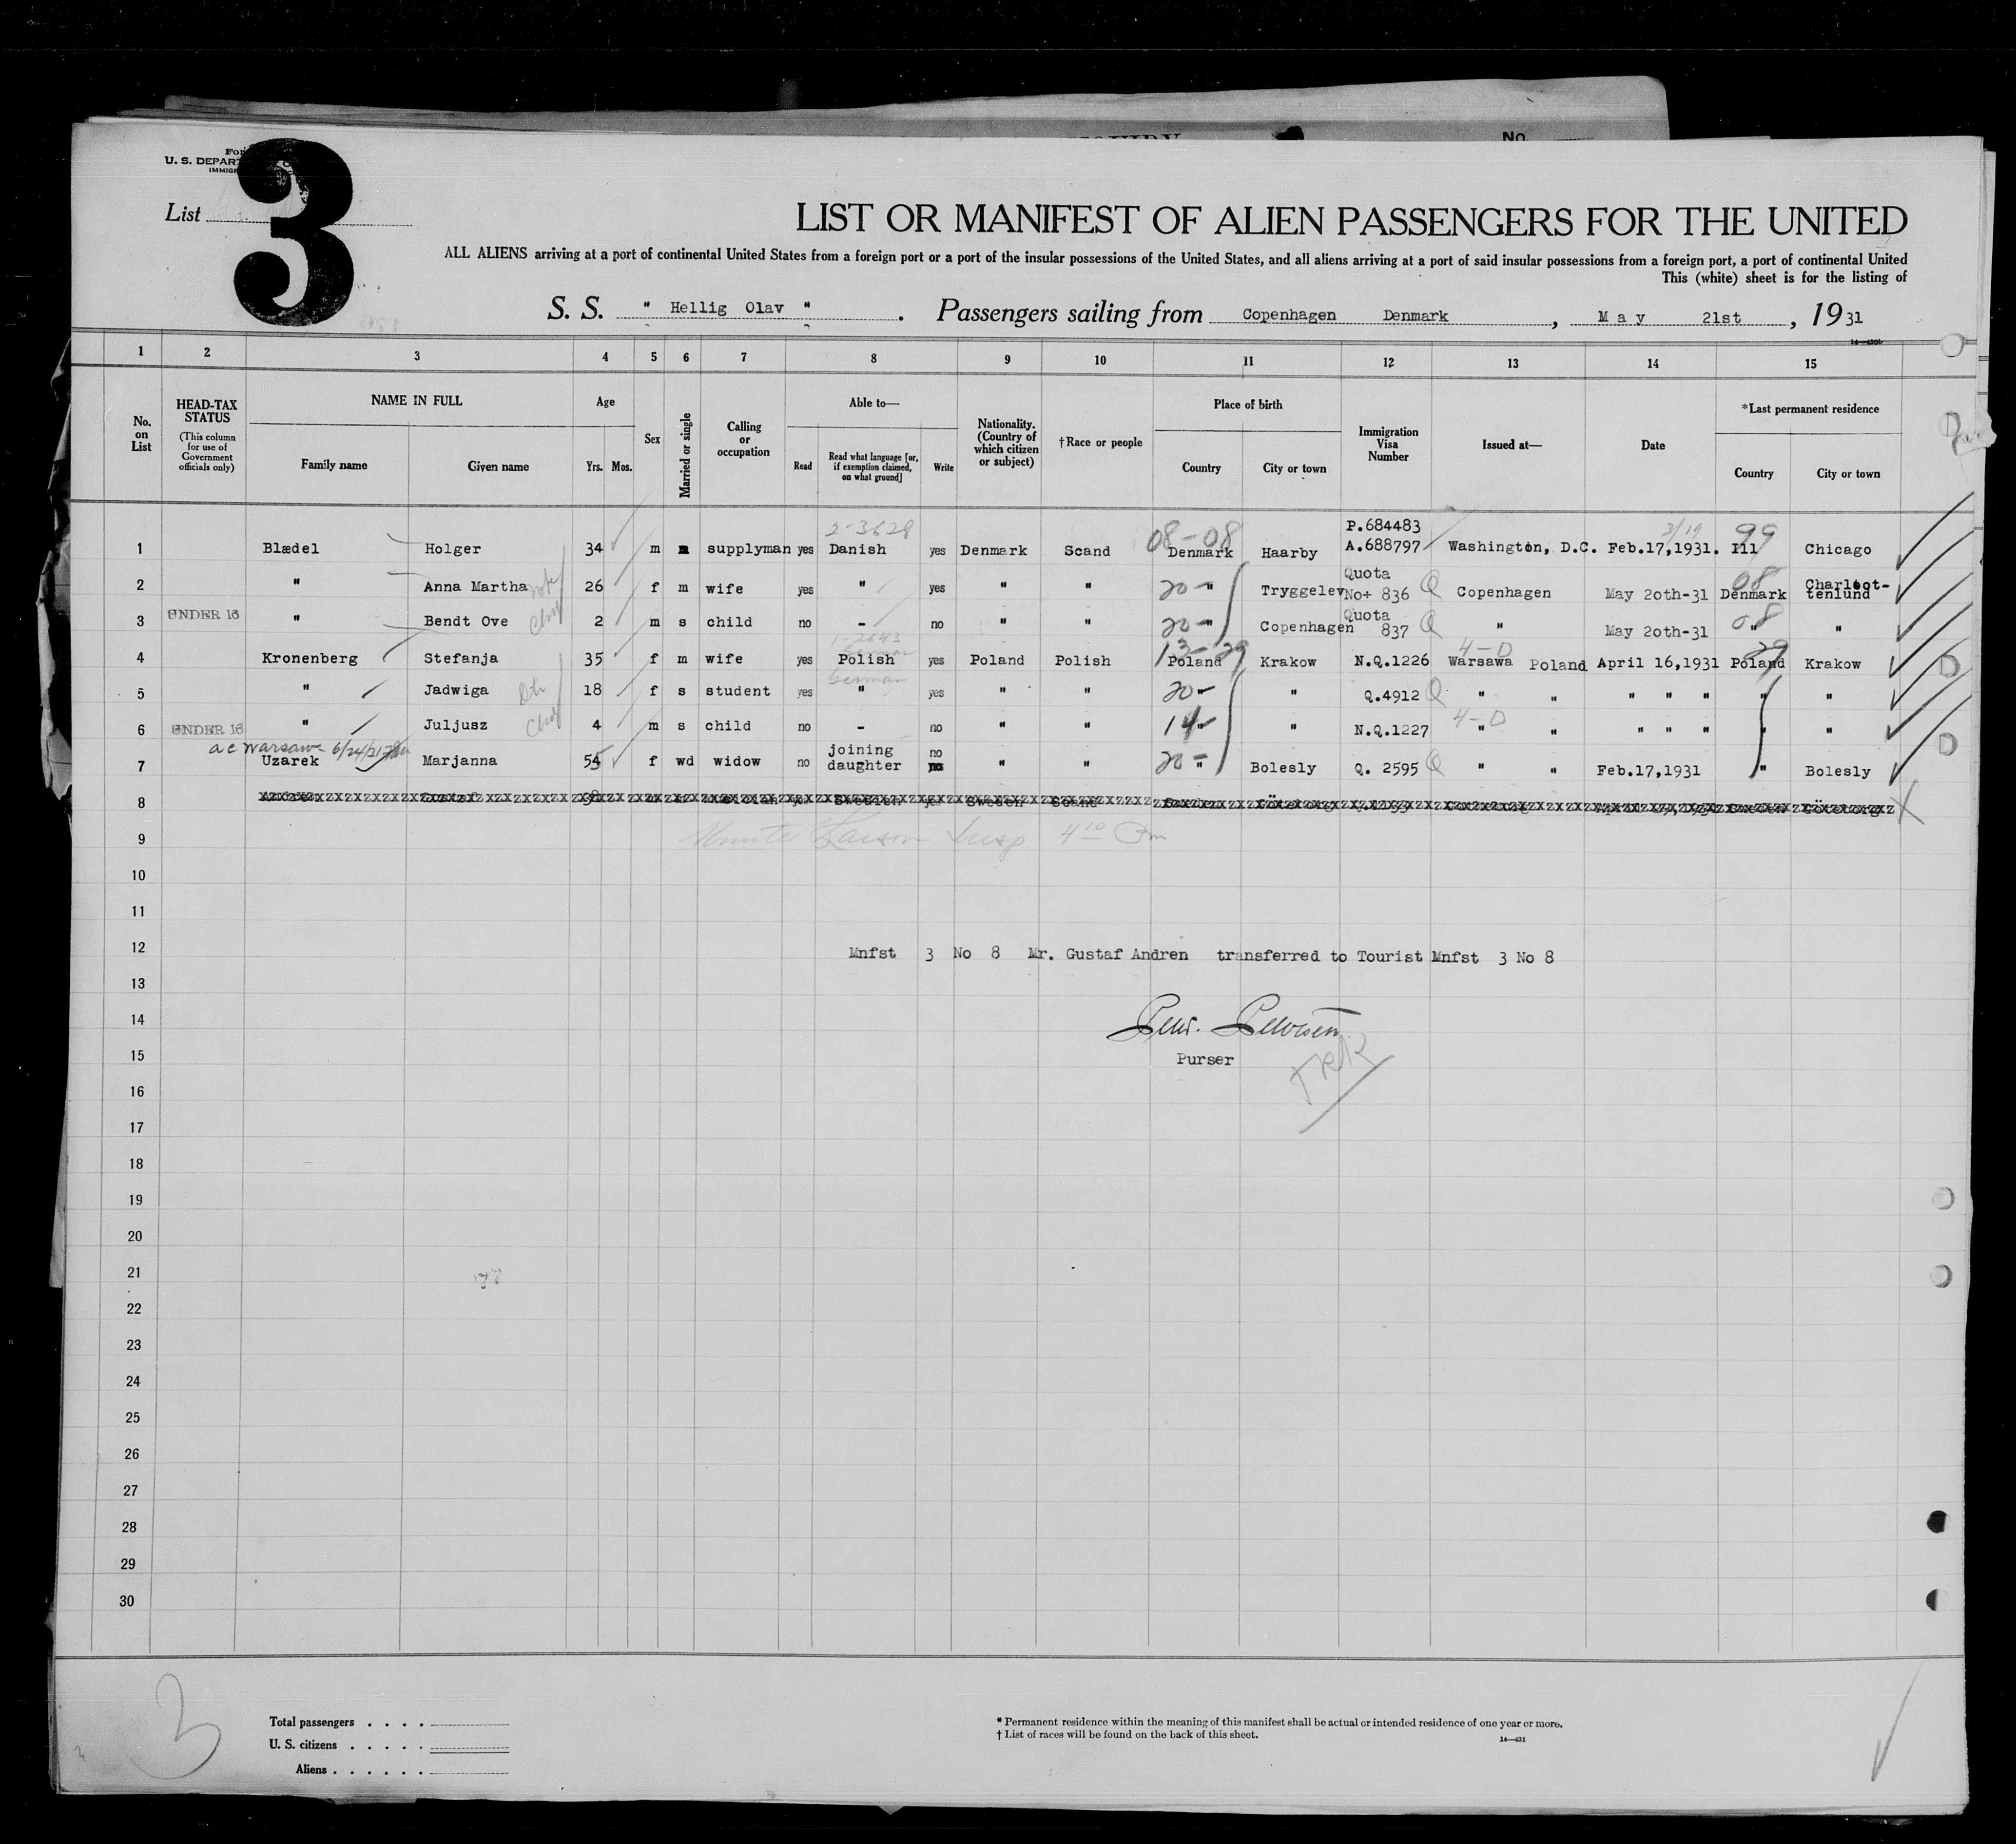 No.
U. S. DEPAR
IMMIG
List
3
LIST OR MANIFEST OF ALIEN PASSENGERS FOR THE UNITED
ALL ALIENS arriving at a port of continental United States from a foreign port or a port of the insular possessions of the United States, and all aliens arriving at a port of said insular possessions from a foreign port, a port of continental United
This (white) sheet is for the listing of
S. S. " Hellig Olav " . Passengers sailing from Copenhagen Denmark , May 21st , 1931
14—430b
1 2 3 4 5 6 7 8 9 10 11 12 13 14 15
No. on List
HEAD-TAX STATUS (This column for use of Government officials only)
NAME IN FULL Family name Given name
Age Yrs. Mos.
Sex
Married or single
Calling or occupation
Able to— Read Read what language [or, if exemption claimed, on what ground] Write
Nationality. (Country of which citizen or subject)
†Race or people
Place of birth Country City or town
Immigration Visa Number
Issued at—
Date
*Last permanent residence Country City or town
2-3628 08-08 P.684483 3/19 99
1 Blædel Holger 34 m m supplyman yes Danish yes Denmark Scand Denmark Haarby A.688797 Washington, D.C. Feb.17,1931. Ill Chicago
2 " Anna Martha wife 26 f m wife yes " yes " " 20 " Tryggelev Quota No+ 836 Q Copenhagen May 20th-31 08 Denmark Charlott-tenlund
3 UNDER 16 " Bendt Ove 2 m s child no - no " " 20 " Copenhagen Quota 837 Q " May 20th-31 08 " "
1-2643 German 13-29 4-D 29
4 Kronenberg Stefanja 35 f m wife yes Polish yes Poland Polish Poland Krakow N.Q.1226 Warsawa Poland April 16,1931 Poland Krakow
German
5 " Jadwiga 18 f s student yes " yes " " 20 " " Q.4912 Q " " " " " " "
6 UNDER 16 " Juljusz 4 m s child no - no " " 14 " " N.Q.1227 4-D " " " " " " "
a c Warsawa 6/24/31
7 Uzarek Marjanna 54 f wd widow no joining daughter no " " 20 " Bolesly Q. 2595 Q " " Feb.17,1931 " Bolesly
8
9 Larson Insp 4 10 Pm
10
11
12 Mnfst 3 No 8 Mr. Gustaf Andren transferred to Tourist Mnfst 3 No 8
13
14
15 Purser
16
17
18
19
20
21
22
23
24
25
26
27
28
29
30
3
Total passengers . . . .
U. S. citizens . . . . .
Aliens . . . . . .
* Permanent residence within the meaning of this manifest shall be actual or intended residence of one year or more.
† List of races will be found on the back of this sheet.
14—431